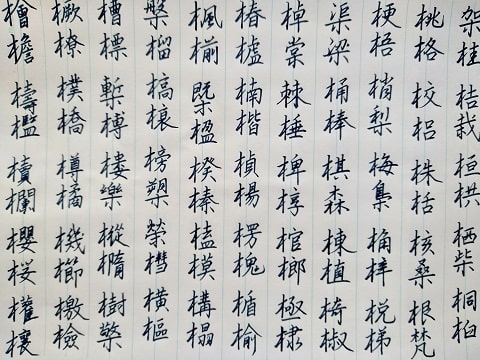 架桂桔栽桓栱栖柴桐桕
桃格校梠株栝核桑根梵
梗梧梢梨梅梟桷梓梲梯
渠梁桶棒棋森棟植椅椒
棹棠棘棰椑椁棺榔極棣
椿楠楷楨楊楞槐楯榆
楓槩楹楑榛榼模構榻
槃榴槁榱榜槊榮槥橫樞
槽標槧槫樓樂樅橢樹檠
橛橑樸橋樽橘機櫛檄檢
檜檐檮檻櫝欄櫻桜權欀